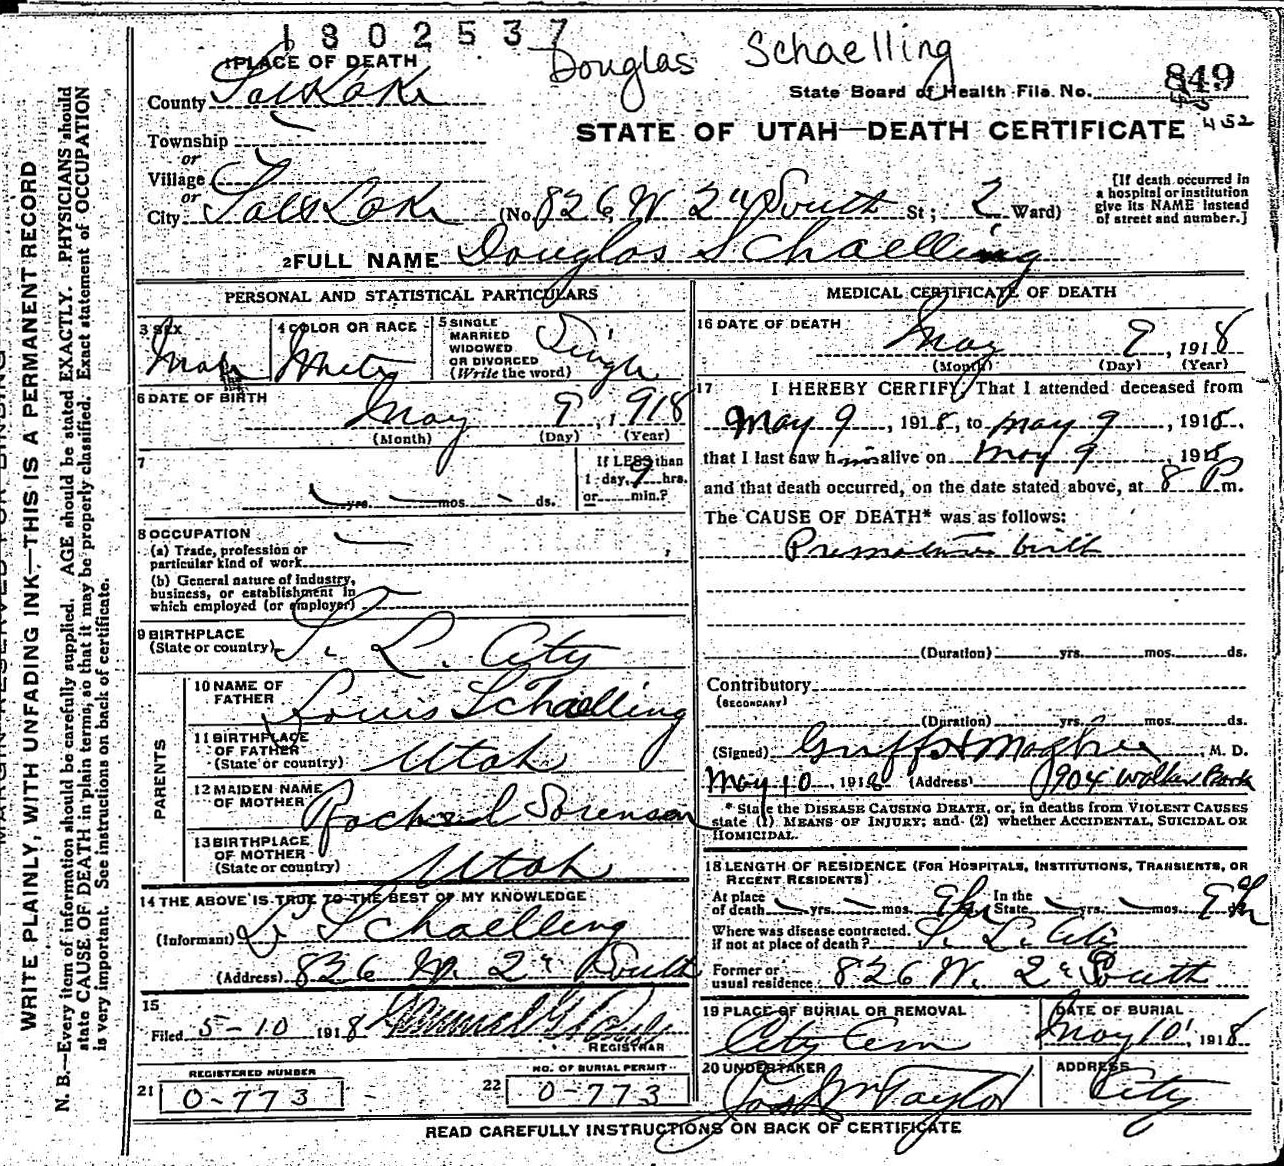 1802537
Douglas Schaelling
1 PLACE OF DEATH
County Salt Lake
State Board of Health File No. 849
452
Township
or
Village
or
STATE OF UTAH—DEATH CERTIFICATE
City Salt Lake (No. 826 W 2nd South St; 2 Ward)
[If death occurred in
a hospital or institution
give its NAME instead
of street and number.]
2 FULL NAME Douglas Schaelling
PERSONAL AND STATISTICAL PARTICULARS
3 SEX Male
4 COLOR OR RACE White
5 SINGLE
MARRIED
WIDOWED
OR DIVORCED
(Write the word) Single
6 DATE OF BIRTH
May 9, 1918
(Month) (Day) (Year)
7
yrs. mos. ds.
If LESS than
1 day, 9 hrs.
or min.?
8 OCCUPATION
(a) Trade, profession or
particular kind of work
(b) General nature of industry,
business, or establishment in
which employed (or employer)
9 BIRTHPLACE
(State or country) S. L. City
PARENTS
10 NAME OF
FATHER Louis Schaelling
11 BIRTHPLACE
OF FATHER
(State or country) Utah
12 MAIDEN NAME
OF MOTHER Rachel Sorenson
13 BIRTHPLACE
OF MOTHER
(State or country) Utah
14 THE ABOVE IS TRUE TO THE BEST OF MY KNOWLEDGE
(Informant) L. Schaelling
(Address) 826 W. 2nd South
15
Filed 5-10 1918
REGISTRAR
REGISTERED NUMBER
21 0-773
NO. OF BURIAL PERMIT
22 0-773
MEDICAL CERTIFICATE OF DEATH
16 DATE OF DEATH
May 9, 1918
(Month) (Day) (Year)
17 I HEREBY CERTIFY, That I attended deceased from
May 9, 1918, to May 9, 1918,
that I last saw him alive on May 9, 1918
and that death occurred, on the date stated above, at 8 P m.
The CAUSE OF DEATH* was as follows:
Premature birth
(Duration) yrs. mos. ds.
Contributory
(SECONDARY)
(Duration) yrs. mos. ds.
(Signed) M. D.
May 10, 1918 (Address) 904 Walker Bank
* State the DISEASE CAUSING DEATH, or, in deaths from VIOLENT CAUSES
state (1) MEANS OF INJURY; and (2) whether ACCIDENTAL, SUICIDAL OR
HOMICIDAL.
18 LENGTH OF RESIDENCE (FOR HOSPITALS, INSTITUTIONS, TRANSIENTS, OR
RECENT RESIDENTS)
At place
of death yrs. mos. 9 hr In the
State yrs. mos. 9 hr
Where was disease contracted.
if not at place of death? S. L. City
Former or
usual residence 826 W. 2nd South
19 PLACE OF BURIAL OR REMOVAL
City Cem
DATE OF BURIAL
May 10, 1918
20 UNDERTAKER
Jos Wm Taylor
ADDRESS
City
READ CAREFULLY INSTRUCTIONS ON BACK OF CERTIFICATE
WRITE PLAINLY, WITH UNFADING INK—THIS IS A PERMANENT RECORD
N. B.—Every item of information should be carefully supplied. AGE should be stated EXACTLY. PHYSICIANS should
state CAUSE OF DEATH in plain terms, so that it may be properly classified. Exact statement of OCCUPATION
is very important. See instructions on back of certificate.